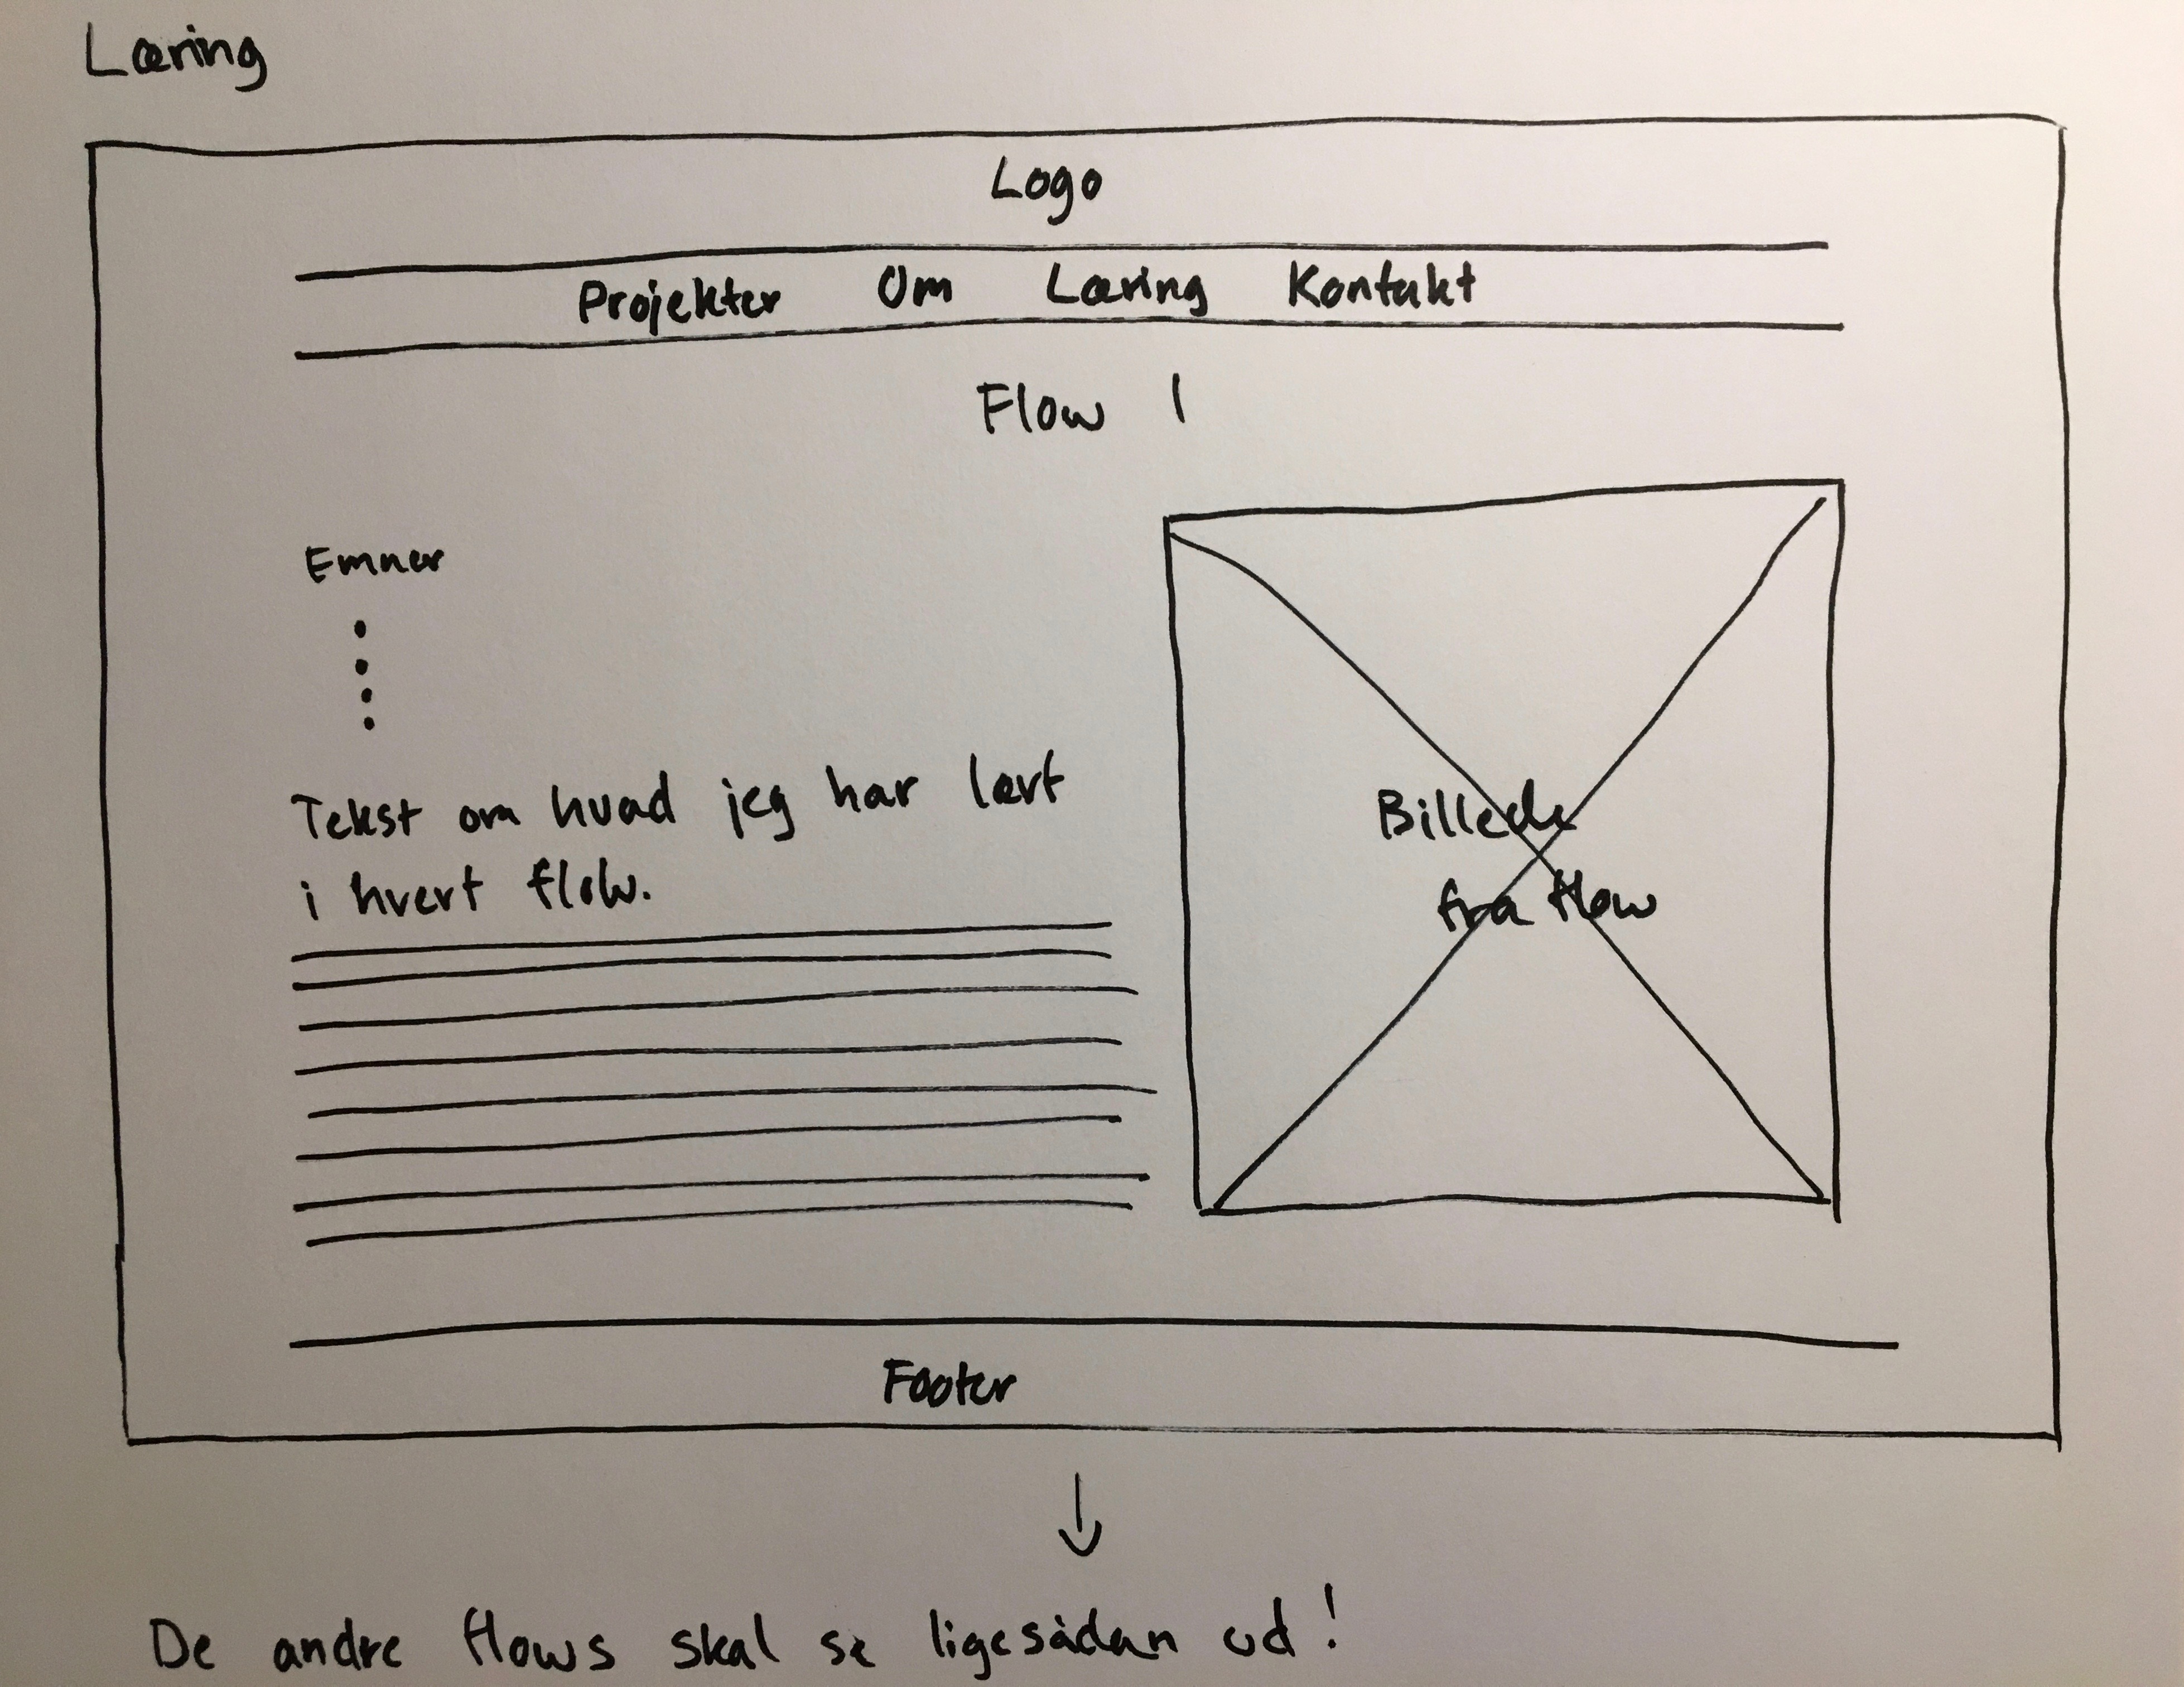 Læring
Logo
Projekter Om Læring Kontakt
Flow 1
Emner
Tekst om hvad jeg har lært
i hvert flow.
Billede
fra flow
Footer
De andre flows skal se ligesådan ud!